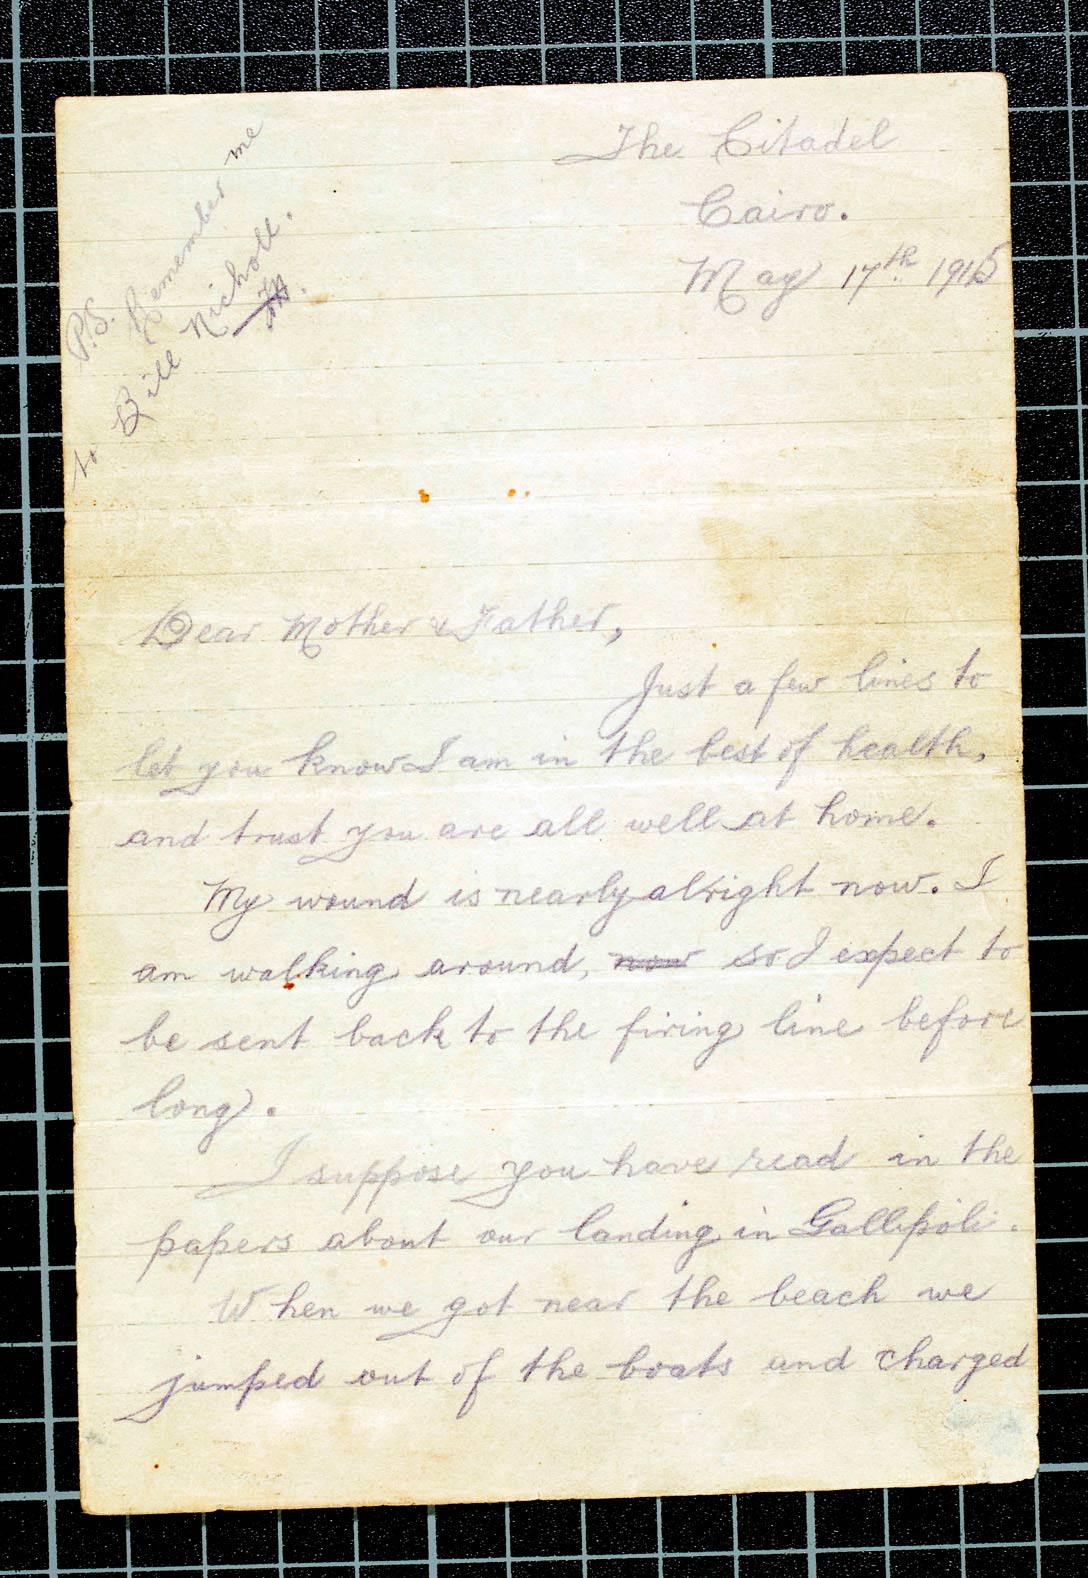 The Citadel
Cairo.
May 17th 1915
P.S. Remember me
to Bill Nicholl.
Dear Mother & Father,
Just a few lines to
let you know I am in the best of health,
and trust you are all well at home.
My wound is nearly alright now. I
am walking around, now so I expect to
be sent back to the firing line before
long.
I suppose you have read in the
papers about our landing in Gallipoli.
When we got near the beach we
jumped out of the boats and charged